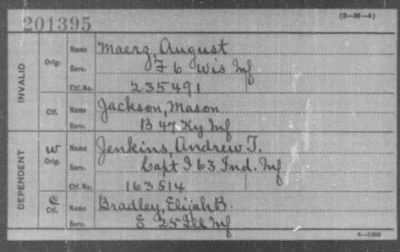 (3-26-4)
201395
INVALID
Orig. Name Maerz, August
Serv. F 6 Wis Inf
Ctf. No. 235491
Ctf. Name Jackson, Mason
Serv. B 47 Ky Inf
DEPENDENT
W Orig. Name Jenkins, Andrew T.
Serv. Capt I 63 Ind. Inf
Ctf. No. 163514
C Ctf. Name Bradley, Elijah B.
Serv. E 25 Ill Inf